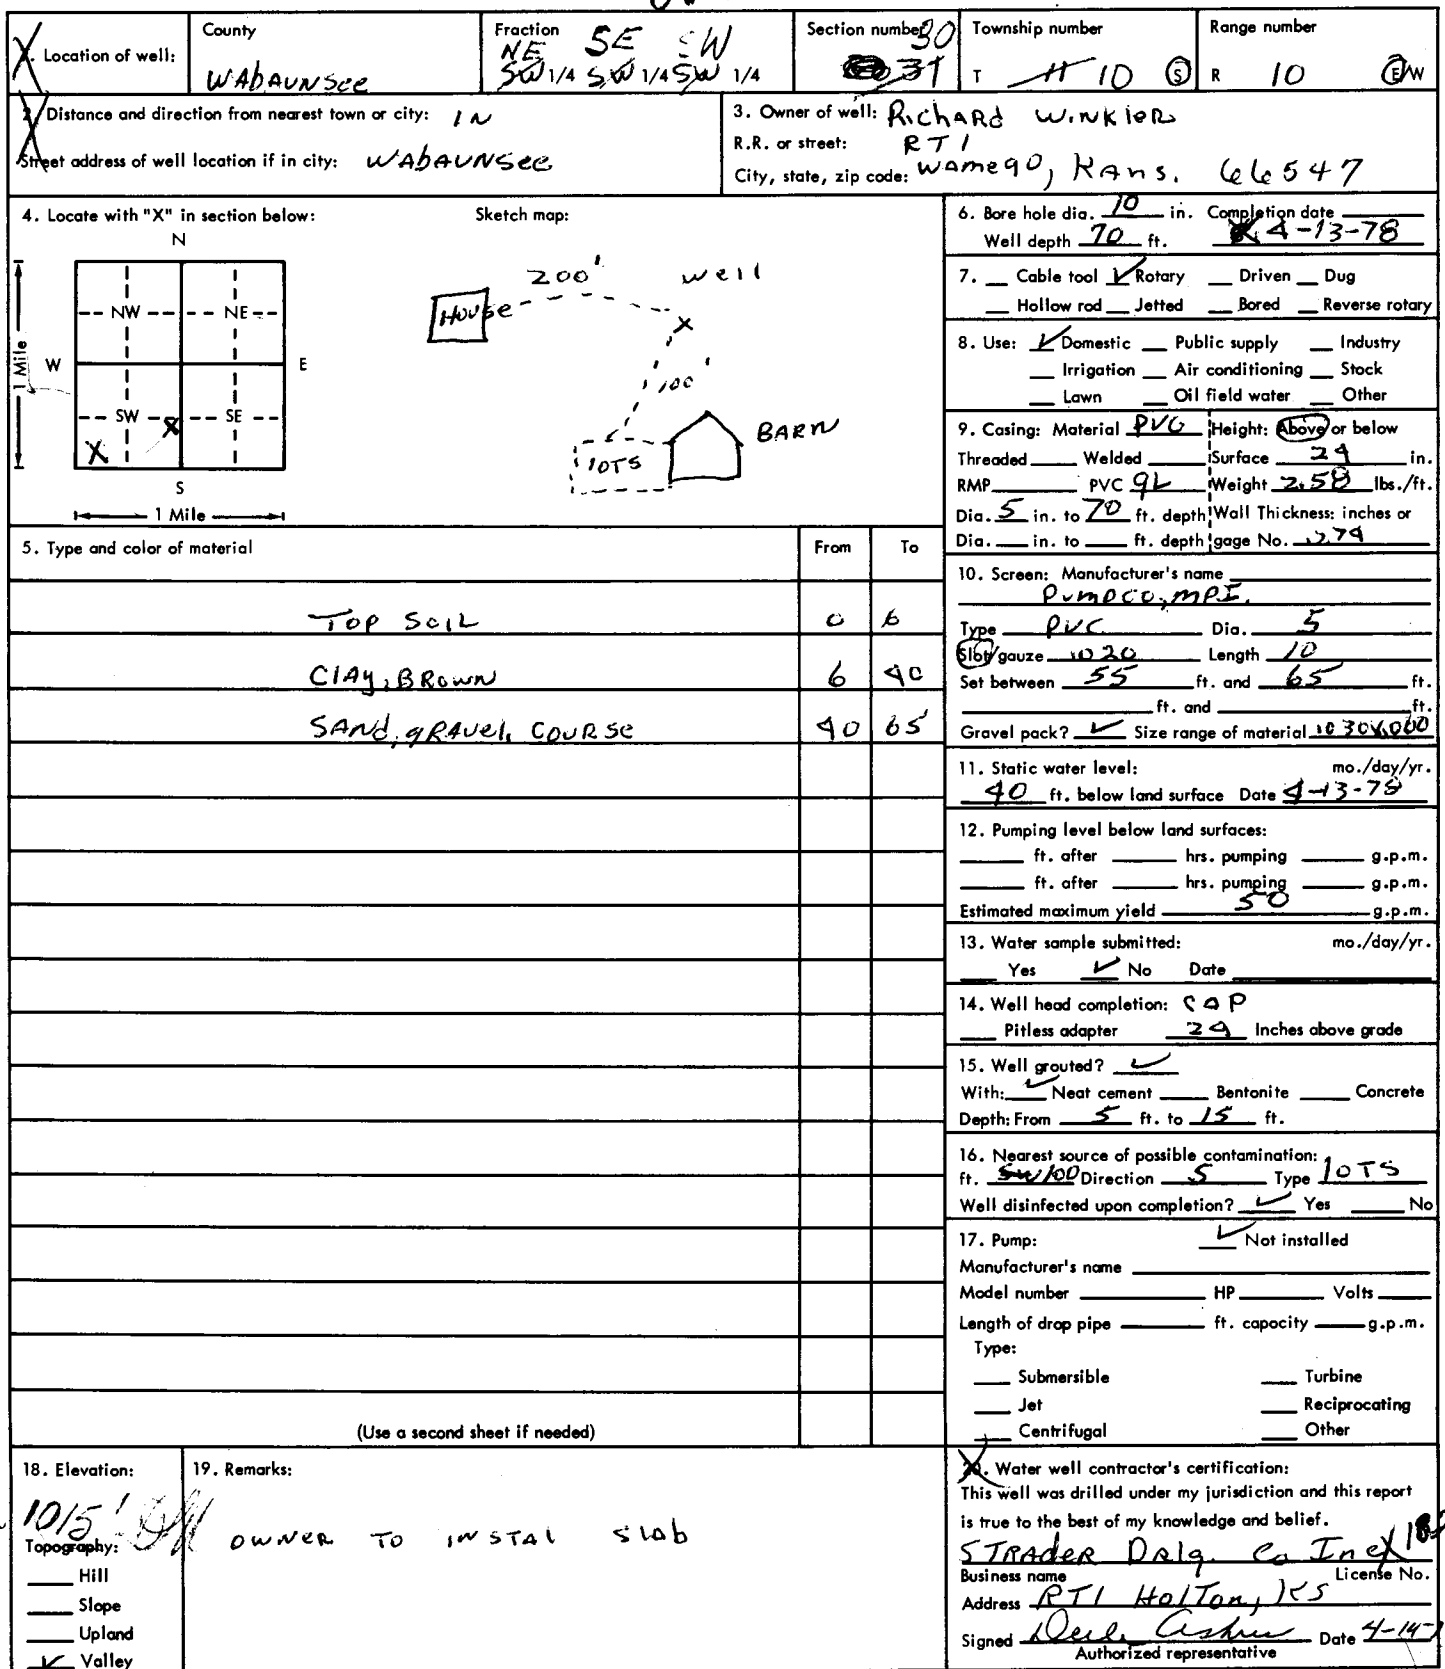 County
Fraction
Section number 30
Township number
Range number
Location of well:
NE SE SW
WAbAUNSee
SW 1/4 SW 1/4 SW 1/4
31
T 11 10 S
R 10 E/W
2. Distance and direction from nearest town or city: IN
Street address of well location if in city: WAbAUNSee
3. Owner of well: RichARd WINKleR
R.R. or street: RT1
City, state, zip code: Wamego, KANS. 66547
4. Locate with "X" in section below:
Sketch map:
N
NW NE
W E
SW X SE
X
S
1 Mile
1 Mile
200' well
House
X
100'
BARN
lOTS
5. Type and color of material From To
TOP SOIL 0 6
CLAY, BROWN 6 40
SANd, gRAVel, COURSE 40 65
(Use a second sheet if needed)
6. Bore hole dia. 10 in. Completion date
Well depth 70 ft. 4-13-78
7. Cable tool ✓ Rotary Driven Dug
Hollow rod Jetted Bored Reverse rotary
8. Use: ✓ Domestic Public supply Industry
Irrigation Air conditioning Stock
Lawn Oil field water Other
9. Casing: Material PVC Height: Above or below
Threaded Welded Surface 24 in.
RMP PVC GL Weight 2.58 lbs./ft.
Dia. 5 in. to 70 ft. depth Wall Thickness: inches or
Dia. in. to ft. depth gage No.
10. Screen: Manufacturer's name
PUMPCO, MPI.
Type PVC Dia. 5
Slot/gauze .020 Length 10
Set between 55 ft. and 65 ft.
ft. and ft.
Gravel pack? ✓ Size range of material
11. Static water level: mo./day/yr.
40 ft. below land surface Date 4-13-78
12. Pumping level below land surfaces:
ft. after hrs. pumping g.p.m.
ft. after hrs. pumping g.p.m.
Estimated maximum yield 50 g.p.m.
13. Water sample submitted: mo./day/yr.
Yes ✓ No Date
14. Well head completion: CAP
Pitless adapter 24 Inches above grade
15. Well grouted? ✓
With: ✓ Neat cement Bentonite Concrete
Depth: From 5 ft. to 15 ft.
16. Nearest source of possible contamination:
ft. 100 Direction S Type lOTS
Well disinfected upon completion? ✓ Yes No
17. Pump: ✓ Not installed
Manufacturer's name
Model number HP Volts
Length of drop pipe ft. capacity g.p.m.
Type:
Submersible Turbine
Jet Reciprocating
Centrifugal Other
18. Elevation:
1015'
Topography:
Hill
Slope
Upland
✓ Valley
19. Remarks:
OWNER TO INSTAL SlAb
20. Water well contractor's certification:
This well was drilled under my jurisdiction and this report
is true to the best of my knowledge and belief.
STRADER DRlg. Co Inc
Business name License No.
Address RT1 HolTon, KS
Signed Date 4-14-
Authorized representative